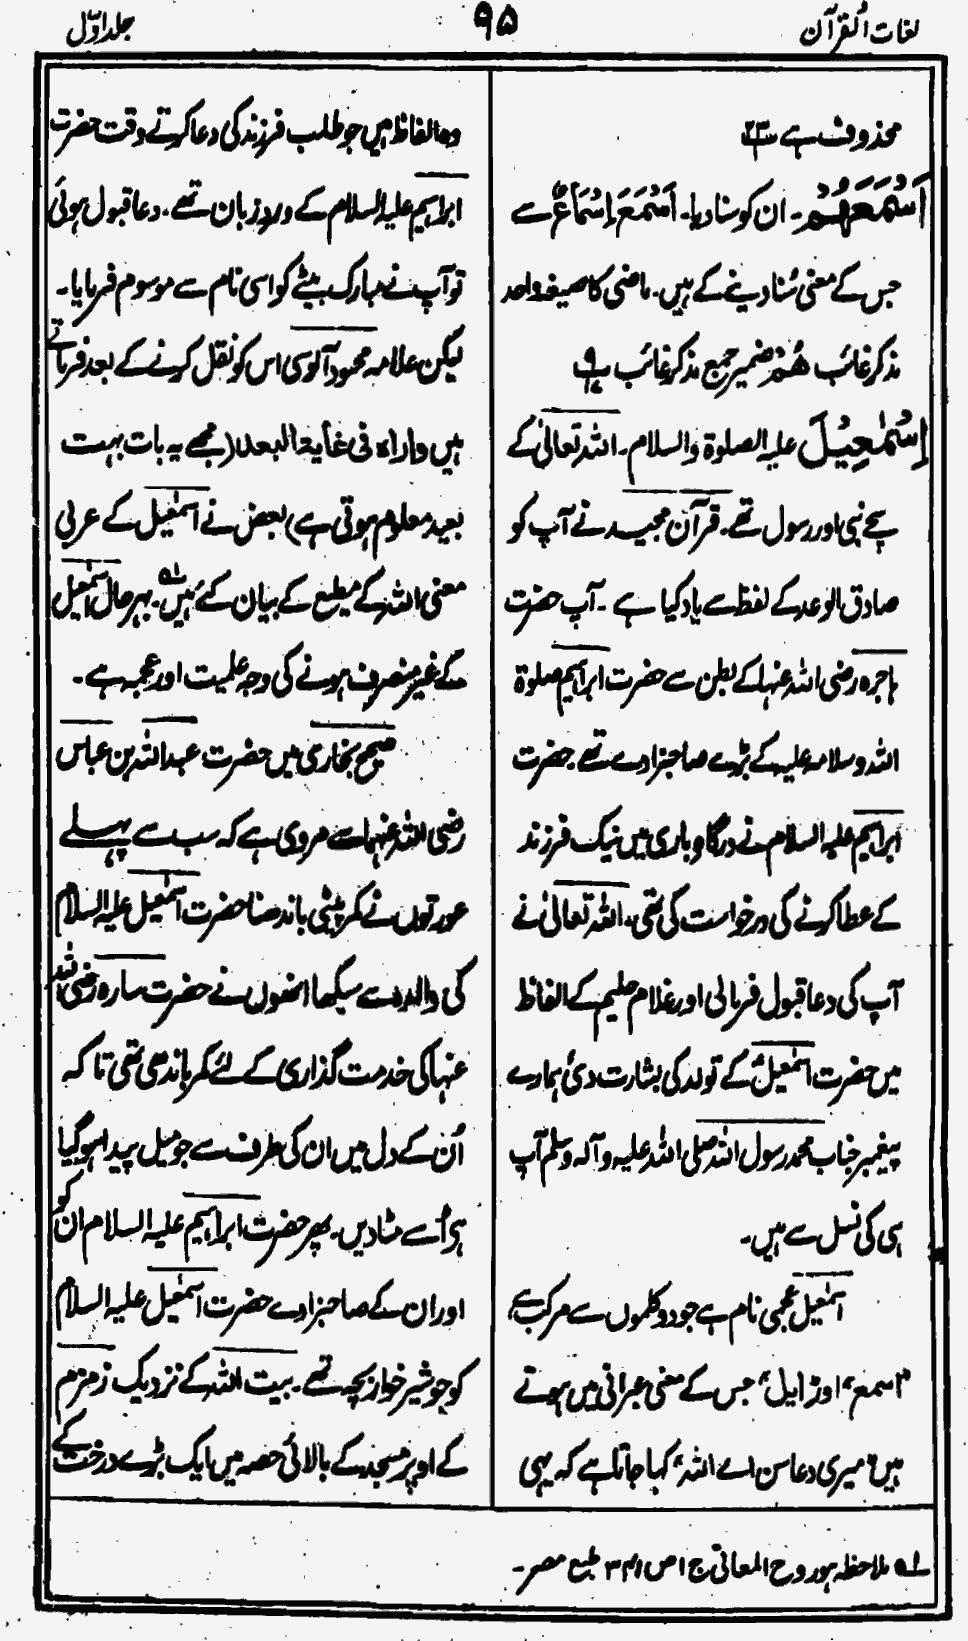 لغات القرآن
۹۵
جلد اوّل
محذوف ہے
اَسْمَعَهُمْ۔ ان کو سنا دیا۔ اَسْمَعَ اِسْمَاعٌ سے
جس کے معنی سُنا دینے کے ہیں۔ ماضی کا صیغہ واحد
مذکر غائب هُمْ ضمیر جمع مذکر غائب پ ۹/۱۷
اِسْمٰعِيْلَ علیہ الصلوة والسلام۔ اللہ تعالیٰ کے
سچے نبی اور رسول تھے۔ قرآن مجید نے آپ کو
صادق الوعد کے لفظ سے یاد کیا ہے ۔ آپ حضرت
ہاجرہ رضی اللہ عنہا کے بطن سے حضرت ابراہیم صلوة
اللہ وسلامہ علیہ کے بڑے صاحبزادے تھے۔ حضرت
ابراہیم علیہ السلام نے درگاہ باری میں نیک فرزند
کے عطا کرنے کی درخواست کی تھی۔ اللہ تعالیٰ نے
آپ کی دعا قبول فرمالی اور غلام حلیم کے الفاظ
میں حضرت اسمٰعیلؑ کے تولد کی بشارت دی ہمارے
پیغمبر جناب محمد رسول اللہ صلی اللہ علیہ وآلہ وسلم آپ
ہی کی نسل سے ہیں۔
اسمٰعیل عجمی نام ہے جو دو کلموں سے مرکب ہے،
"اسمع" اور "ایل" جس کے معنی عبرانی میں ہوتے
ہیں "میری دعا سن اے اللہ" کہا جاتا ہے کہ یہی
وہ الفاظ ہیں جو طلب فرزند کی دعا کرتے وقت حضرت
ابراہیم علیہ السلام کے ورد زبان تھے۔ دعا قبول ہوئی
تو آپ نے مبارک بیٹے کو اسی نام سے موسوم فرمایا۔
لیکن علامہ محمود آلوسی اس کو نقل کرنے کے بعد فرماتے
ہیں واراہ فی غایة البعد (مجھے یہ بات بہت
بعید معلوم ہوتی ہے) بعض نے اسمٰعیل کے عربی
معنی اللہ کے مطیع کے بیان کئے ہیں۔ ؎۱ بہر حال اسمٰعیل
کے غیر منصرف ہونے کی وجہ علمیت اور عجمہ ہے۔
صحیح بخاری میں حضرت عبداللہ بن عباس
رضی اللہ عنہما سے مروی ہے کہ سب سے پہلے
عورتوں نے کمر پیٹی باندھنا حضرت اسمٰعیل علیہ السلام
کی والدہ سے سیکھا انھوں نے حضرت سارہ رضی اللہ
عنہا کی خدمت گذاری کے لئے کمر باندھی تھی تاکہ
اُن کے دل میں ان کی طرف سے جو میل پیدا ہو گیا
ہو اُسے مٹا دیں۔ پھر حضرت ابراہیم علیہ السلام ان کو
اور ان کے صاحبزادے حضرت اسمٰعیل علیہ السلام
کو جو شیر خوار بچہ تھے۔ بیت اللہ کے نزدیک زمزم
کے اوپر مسجد کے بالائی حصہ میں ایک بڑے درخت کے
؎۱ ملاحظہ ہو روح المعانی ج ۱ ص ۳۴۱ طبع مصر۔